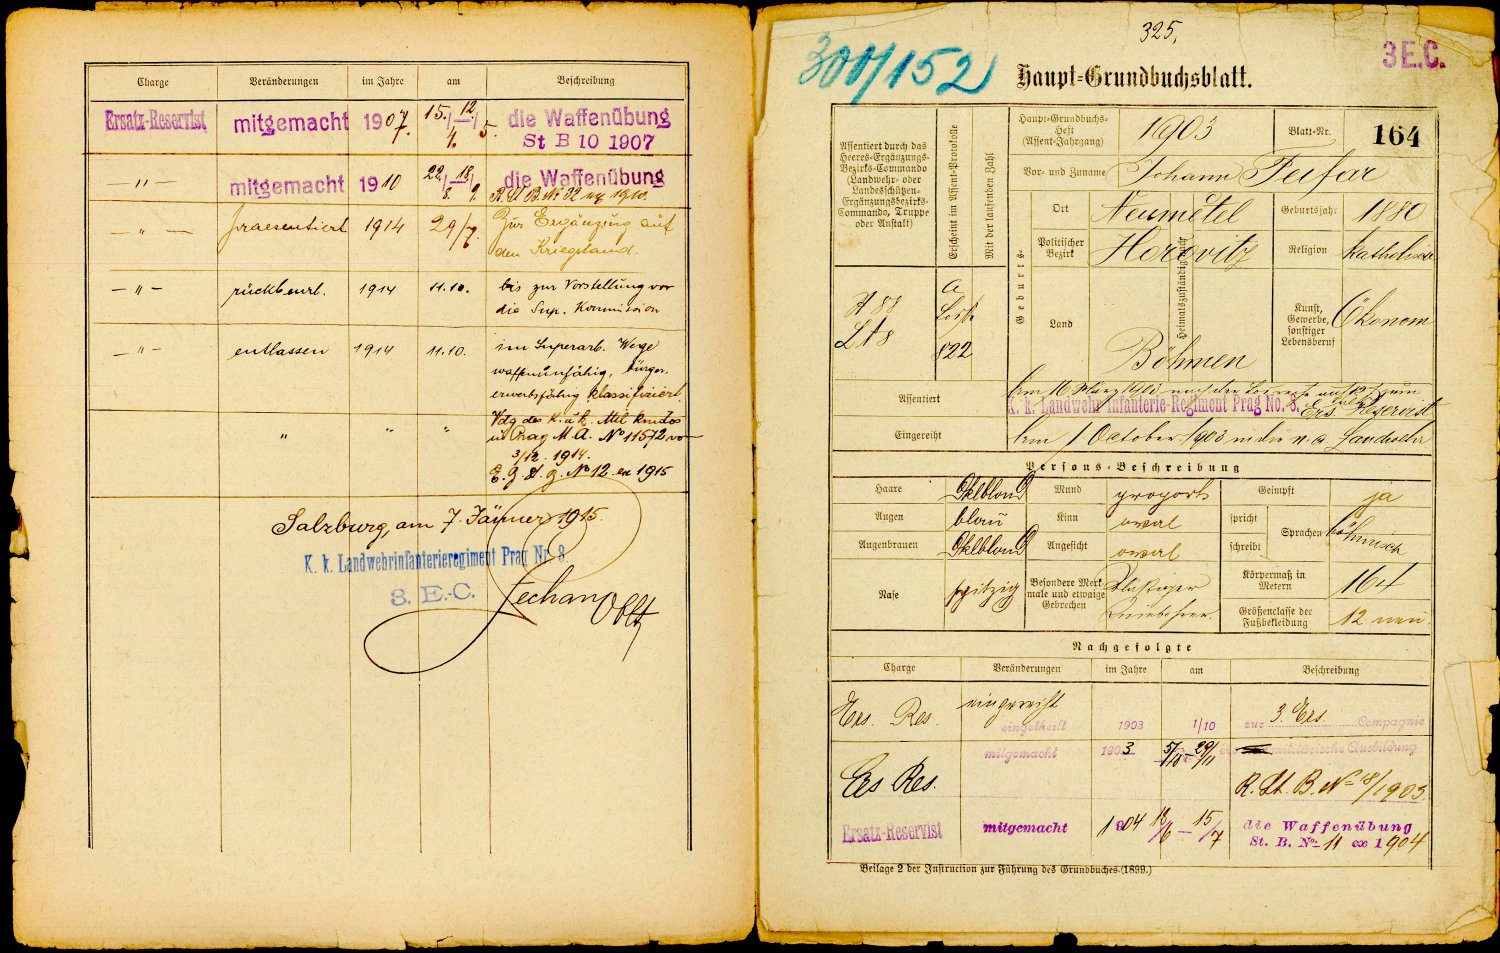 Charge Veränderungen im Jahre am Beschreibung
Ersatz-Reservist mitgemacht 1907. 15./4. — 12./5. die Waffenübung
St B 10 1907
— " — mitgemacht 1910 22./8. — 18/9. die Waffenübung
R. St B. No 32 ex 1910.
— " — praesentiert 1914 29/7. Zur Ergänzung auf
den Kriegsstand.
— " — rückbeurl. 1914 11.10. bis zur Vorstellung vor
die Sup. Kommission
— " — entlassen 1914 11.10. im Superarb. Wege
waffenunfähig, bürger.
erwerbsfähig klassifiziert.
" " " Vdg des K. u. k. Mil kmdos
in Prag M. A. No 11572 vo
3/12. 1914.
E. g. d. g. No 12 ex 1915
Salzburg, am 7. Jänner 1915.
K. k. Landwehrinfanterieregiment Prag Nr. 8.
3. E.-C.
Oblt
325,
300/152
3 E.C.
Haupt=Grundbuchsblatt.
Assentiert durch das
Heeres=Ergänzungs=
Bezirks=Commando
(Landwehr= oder
Landesschützen=
Ergänzungsbezirks=
Commando, Truppe
oder Anstalt)
Erscheint im Assent=Protokolle
Mit der laufenden Zahl
Haupt=Grundbuchs=
Heft
(Assent=Jahrgang)
1903
Blatt=Nr. 164
Vor= und Zuname Johann Peifar
Geburts=
Ort Neumětel
Geburtsjahr 1880
Politischer
Bezirk
Horovitz
Heimatszuständig
Religion katholisch
Land Böhmen
Kunst,
Gewerbe,
sonstiger
Lebensberuf
Ökonom
822
Assentiert
K. k. Landwehrinfanterie-Regiment Prag No. 8.
Ers. Reservist
Eingereiht 1 October 1903 in die Landwehr
Persons=Beschreibung
Haare Dklblond Mund proport. Geimpft ja
Augen blau Kinn oval spricht
Sprachen böhmisch
Augenbrauen Dklblond Angesicht oval schreibt
Nase spitzig
Besondere Merk=
male und etwaige
Gebrechen
Körpermaß in
Metern
164
Größenclasse der
Fußbekleidung
12
Nachgefolgte
Charge Veränderungen im Jahre am Beschreibung
Ers. Res. eingereiht
eingetheilt 1903 1/10 zur 3. Ers. Compagnie
mitgemacht 1903 5/10 — 29/11 militärische Ausbildung
Ers Res. R. St. B. No 18/1903.
Ersatz-Reservist mitgemacht 1904 18/6 — 15/7 die Waffenübung
St. B. No 11 ex 1904
Beilage 2 der Instruction zur Führung des Grundbuches (1899.)